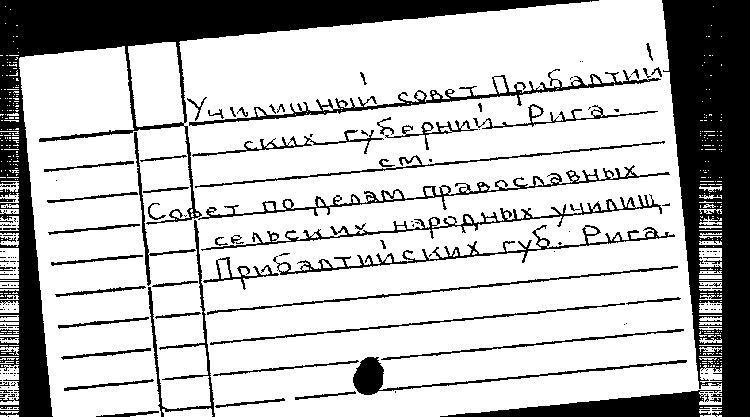 Училищный совет Прибалтий-
ских губерний. Рига.
см.
Совет по делам православных
сельских народных училищ
Прибалтийских губ. Рига.